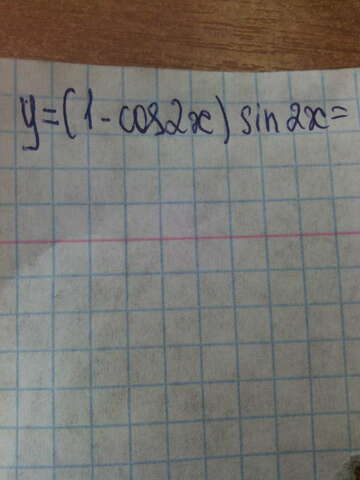 y=(1-cos2x) sin2x=